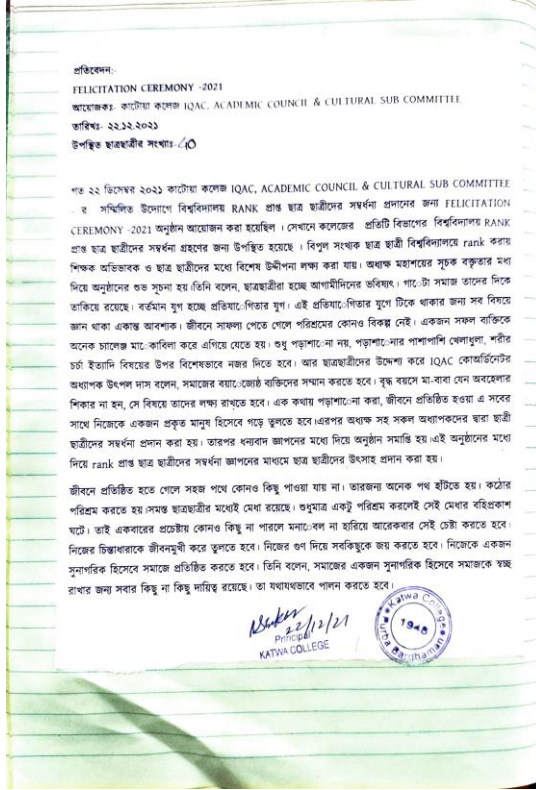 প্রতিবেদন:-
FELICITATION CEREMONY -2021
আয়োজকঃ- কাটোয়া কলেজ IQAC, ACADEMIC COUNCIL & CULTURAL SUB COMMITTEE
তারিখঃ- ২২.১২.২০২১
উপস্থিত ছাত্রছাত্রীর সংখ্যাঃ- 40
গত ২২ ডিসেম্বর ২০২১ কাটোয়া কলেজ IQAC, ACADEMIC COUNCIL & CULTURAL SUB COMMITTEE
- র সম্মিলিত উদ্যোগে বিশ্ববিদ্যালয় RANK প্রাপ্ত ছাত্র ছাত্রীদের সম্বর্ধনা প্রদানের জন্য FELICITATION
CEREMONY -2021 অনুষ্ঠান আয়োজন করা হয়েছিল । সেখানে কলেজের প্রতিটি বিভাগের বিশ্ববিদ্যালয় RANK
প্রাপ্ত ছাত্র ছাত্রীদের সম্বর্ধনা গ্রহণের জন্য উপস্থিত হয়েছে । বিপুল সংখ্যক ছাত্র ছাত্রী বিশ্ববিদ্যালয়ে rank করায়
শিক্ষক অভিভাবক ও ছাত্র ছাত্রীদের মধ্যে বিশেষ উদ্দীপনা লক্ষ্য করা যায়। অধ্যক্ষ মহাশয়ের সূচক বক্তৃতার মধ্য
দিয়ে অনুষ্ঠানের শুভ সূচনা হয়।তিনি বলেন, ছাত্রছাত্রীরা হচ্ছে আগামীদিনের ভবিষ্যৎ। গোটা সমাজ তাদের দিকে
তাকিয়ে রয়েছে। বর্তমান যুগ হচ্ছে প্রতিযোগিতার যুগ। এই প্রতিযোগিতার যুগে টিকে থাকার জন্য সব বিষয়ে
জ্ঞান থাকা একান্ত আবশ্যক। জীবনে সাফল্য পেতে গেলে পরিশ্রমের কোনও বিকল্প নেই। একজন সফল ব্যক্তিকে
অনেক চ্যালেঞ্জ মোকাবিলা করে এগিয়ে যেতে হয়। শুধু পড়াশোনা নয়, পড়াশোনার পাশাপাশি খেলাধুলা, শরীর
চর্চা ইত্যাদি বিষয়ের উপর বিশেষভাবে নজর দিতে হবে। আর ছাত্রছাত্রীদের উদ্দেশ্য করে IQAC কোঅর্ডিনেটর
অধ্যাপক উৎপল দাস বলেন, সমাজের বয়োজ্যেষ্ঠ ব্যক্তিদের সম্মান করতে হবে। বৃদ্ধ বয়সে মা-বাবা যেন অবহেলার
শিকার না হন, সে বিষয়ে তাদের লক্ষ্য রাখতে হবে। এক কথায় পড়াশোনা করা, জীবনে প্রতিষ্ঠিত হওয়া এ সবের
সাথে নিজেকে একজন প্রকৃত মানুষ হিসেবে গড়ে তুলতে হবে।এরপর অধ্যক্ষ সহ সকল অধ্যাপকদের দ্বারা ছাত্রী
ছাত্রীদের সম্বর্ধনা প্রদান করা হয়। তারপর ধন্যবাদ জ্ঞাপনের মধ্যে দিয়ে অনুষ্ঠান সমাপ্তি হয়।এই অনুষ্ঠানের মধ্যে
দিয়ে rank প্রাপ্ত ছাত্র ছাত্রীদের সম্বর্ধনা জ্ঞাপনের মাধ্যমে ছাত্র ছাত্রীদের উৎসাহ প্রদান করা হয়।
জীবনে প্রতিষ্ঠিত হতে গেলে সহজ পথে কোনও কিছু পাওয়া যায় না। তারজন্য অনেক পথ হাঁটতে হয়। কঠোর
পরিশ্রম করতে হয়।সমস্ত ছাত্রছাত্রীর মধ্যেই মেধা রয়েছে। শুধুমাত্র একটু পরিশ্রম করলেই সেই মেধার বহিঃপ্রকাশ
ঘটে। তাই একবারের প্রচেষ্টায় কোনও কিছু না পারলে মনোবল না হারিয়ে আরেকবার সেই চেষ্টা করতে হবে।
নিজের চিন্তাধারাকে জীবনমুখী করে তুলতে হবে। নিজের গুণ দিয়ে সবকিছুকে জয় করতে হবে। নিজেকে একজন
সুনাগরিক হিসেবে সমাজে প্রতিষ্ঠিত করতে হবে। তিনি বলেন, সমাজের একজন সুনাগরিক হিসেবে সমাজকে স্বচ্ছ
রাখার জন্য সবার কিছু না কিছু দায়িত্ব রয়েছে। তা যথাযথভাবে পালন করতে হবে।
22/12/21
Principal
KATWA COLLEGE
Katwa College
1948
Purba Bardhaman